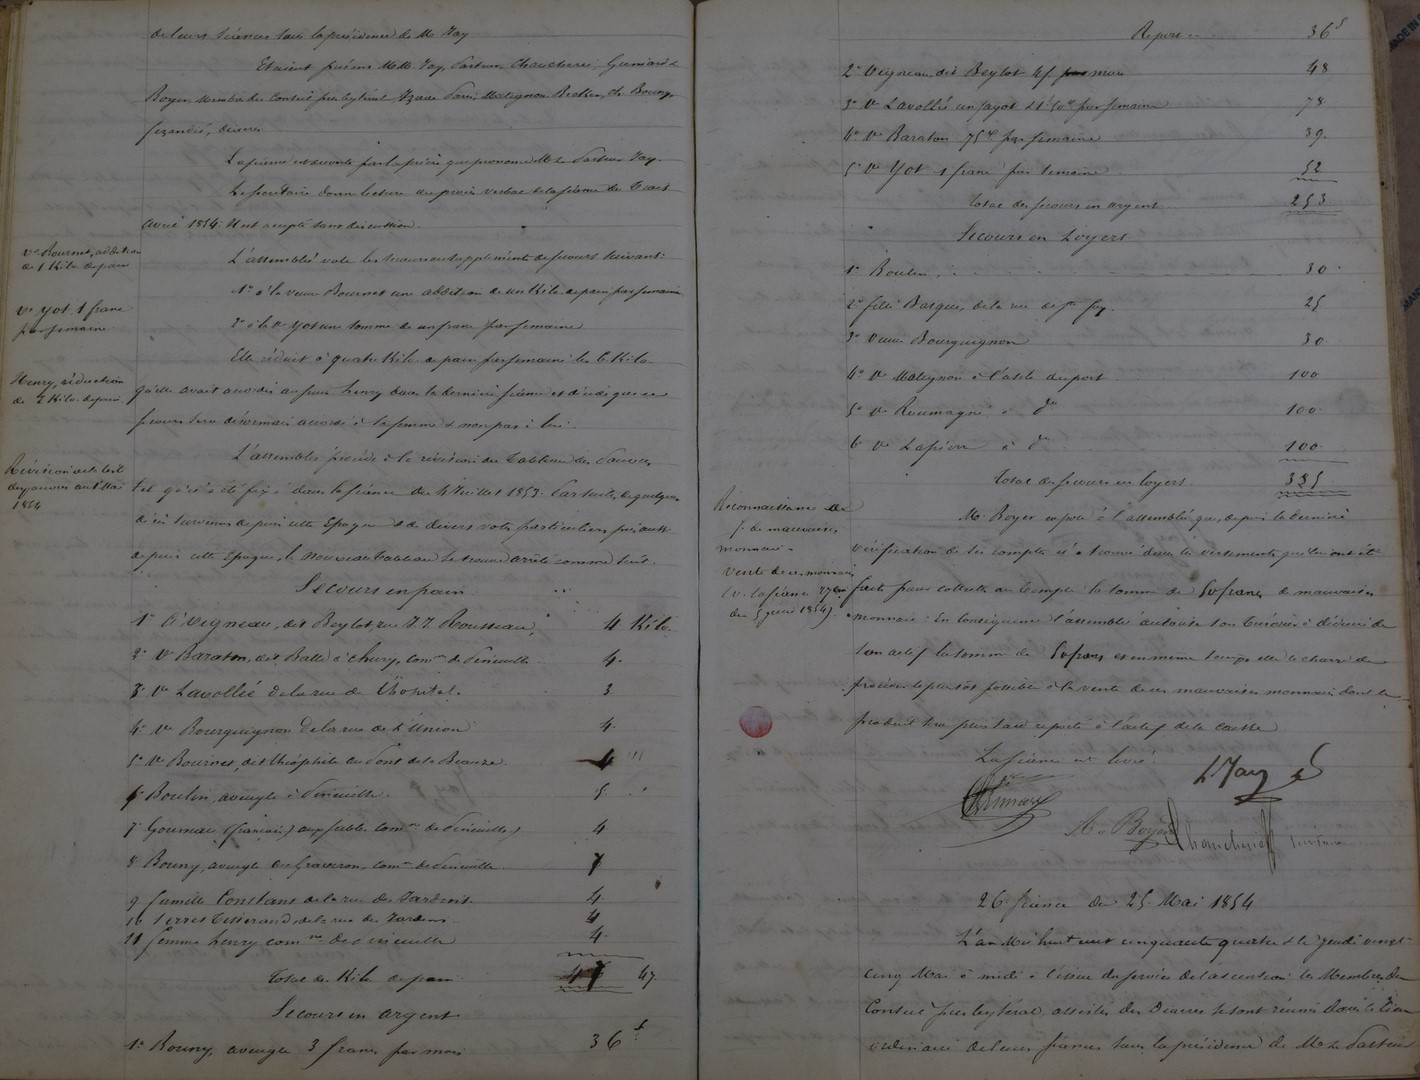 de leurs séances sous la présidence de Mr Jay
Etaient présens M.M. Jay, Pasteur, Chancherie,
Boyer, membres du Conseil presbytéral,
diacres
La séance est ouverte par la prière que prononce Mr le Pasteur Jay.
Le secrétaire donne lecture du procès verbal de la séance du
avril 1854. Il est accepté sans discussion.
Ve Bournet, addition
de 1 Kilo de pain
L'assemblée vote les suppléments de secours suivant:
1o à la veuve Bournet une addition de un Kilo de pain par semaine
Ve Yot 1 franc
par semaine
2o à la Ve Yot une somme de un franc par semaine
Elle réduit à quatre Kilo de pain par semaine les 6 Kilo
Henry, réduction
de 2 Kilo de pain
qu'elle avait accordés au sieur henry dans la dernière séance et décide que ce
secours sera désormais accordé à sa femme & non pas à lui.
Révision de la liste
des pauvres au 1er Mai
1854
L'assemblée procède à la révision du Tableau des Pauvres
tel qu'il a été fixé dans la séance du 4 Juillet 1853. Par suite de quelques
décès survenus depuis cette époque & de divers votes particuliers
depuis cette époque, le nouveau tableau se trouve arrêté comme suit.
Secours en pain
1o Veigneau, dit Beylot, rue J. J. Rousseau, 4 Kilo.
2o Ve Baraton, dit Balle à Chury, comne de Pineuilh 4.
3o Ve Lavollée de la rue de l'hopital. 3
4o Ve Bourguignon de la rue de l'Union 4.
5o Ve Bournet, dit Théophile au Pont de la Beauze. 4 "
6o Boulin, aveugle à Pineuilh. 5. "
7o Goumeau (françois) comne de Pineuilh 4
8 Bouny, aveugle comne de Pineuilh 7
9 famille Constans de la rue des Jardins 4.
10 Serres Tisserand, de la rue des Jardins 4
11 femme henry comne de Pineuilh 4.
Total des Kilo de pain 47 47
Secours en argent
1o Bouny, aveugle 3 francs par mois 36f
Report 36f
2o Veigneau, dit Beylot 4f par mois 48
3o Ve Lavollée 1f 50c par semaine 78
4o Ve Baraton 75c par semaine 39.
5o Ve Yot 1 franc par semaine 52
Total des secours en argent 253
Secours en Loyers
1o Boulin, 30.
2o fille Barque, de la rue de Ste foy. 25
3o Veuve Bourguignon 30
4o Ve Matignon à l'asile du port 100
5o Ve Roumagné à do 100.
6o Ve Lapierre à do 100.
Total des secours en loyers 385.
Reconnaissance de
f. de mauvaise
monnaie.
Vente de ces monnaies
(v. la séance
du 5 1854).
Mr Boyer expose à l'assemblée que, depuis la dernière
vérification de ses comptes il a trouvé dans les versements qui lui ont été
faits pour collectes au temple la somme de francs de mauvaise
monnaie. En conséquence l'assemblée autorise son trésorier à déduire de
son actif la somme de francs et en même temps elle le charge de
procéder le plus tôt possible à la vente de ces mauvaises monnaies dont le
produit sera plus tard reporté à l'actif de la caisse
La séance est levée.
L Jay
A. Boyer
26e séance du 25 Mai 1854
L'an Mil huit cent cinquante quatre & le Jeudi vingt
cinq Mai à midi à l'issue du service de l'ascension les Membres du
Conseil presbytéral, assistés des Diacres se sont réunis dans le lieu
ordinaire de leurs séances sous la présidence de Mr le Pasteur